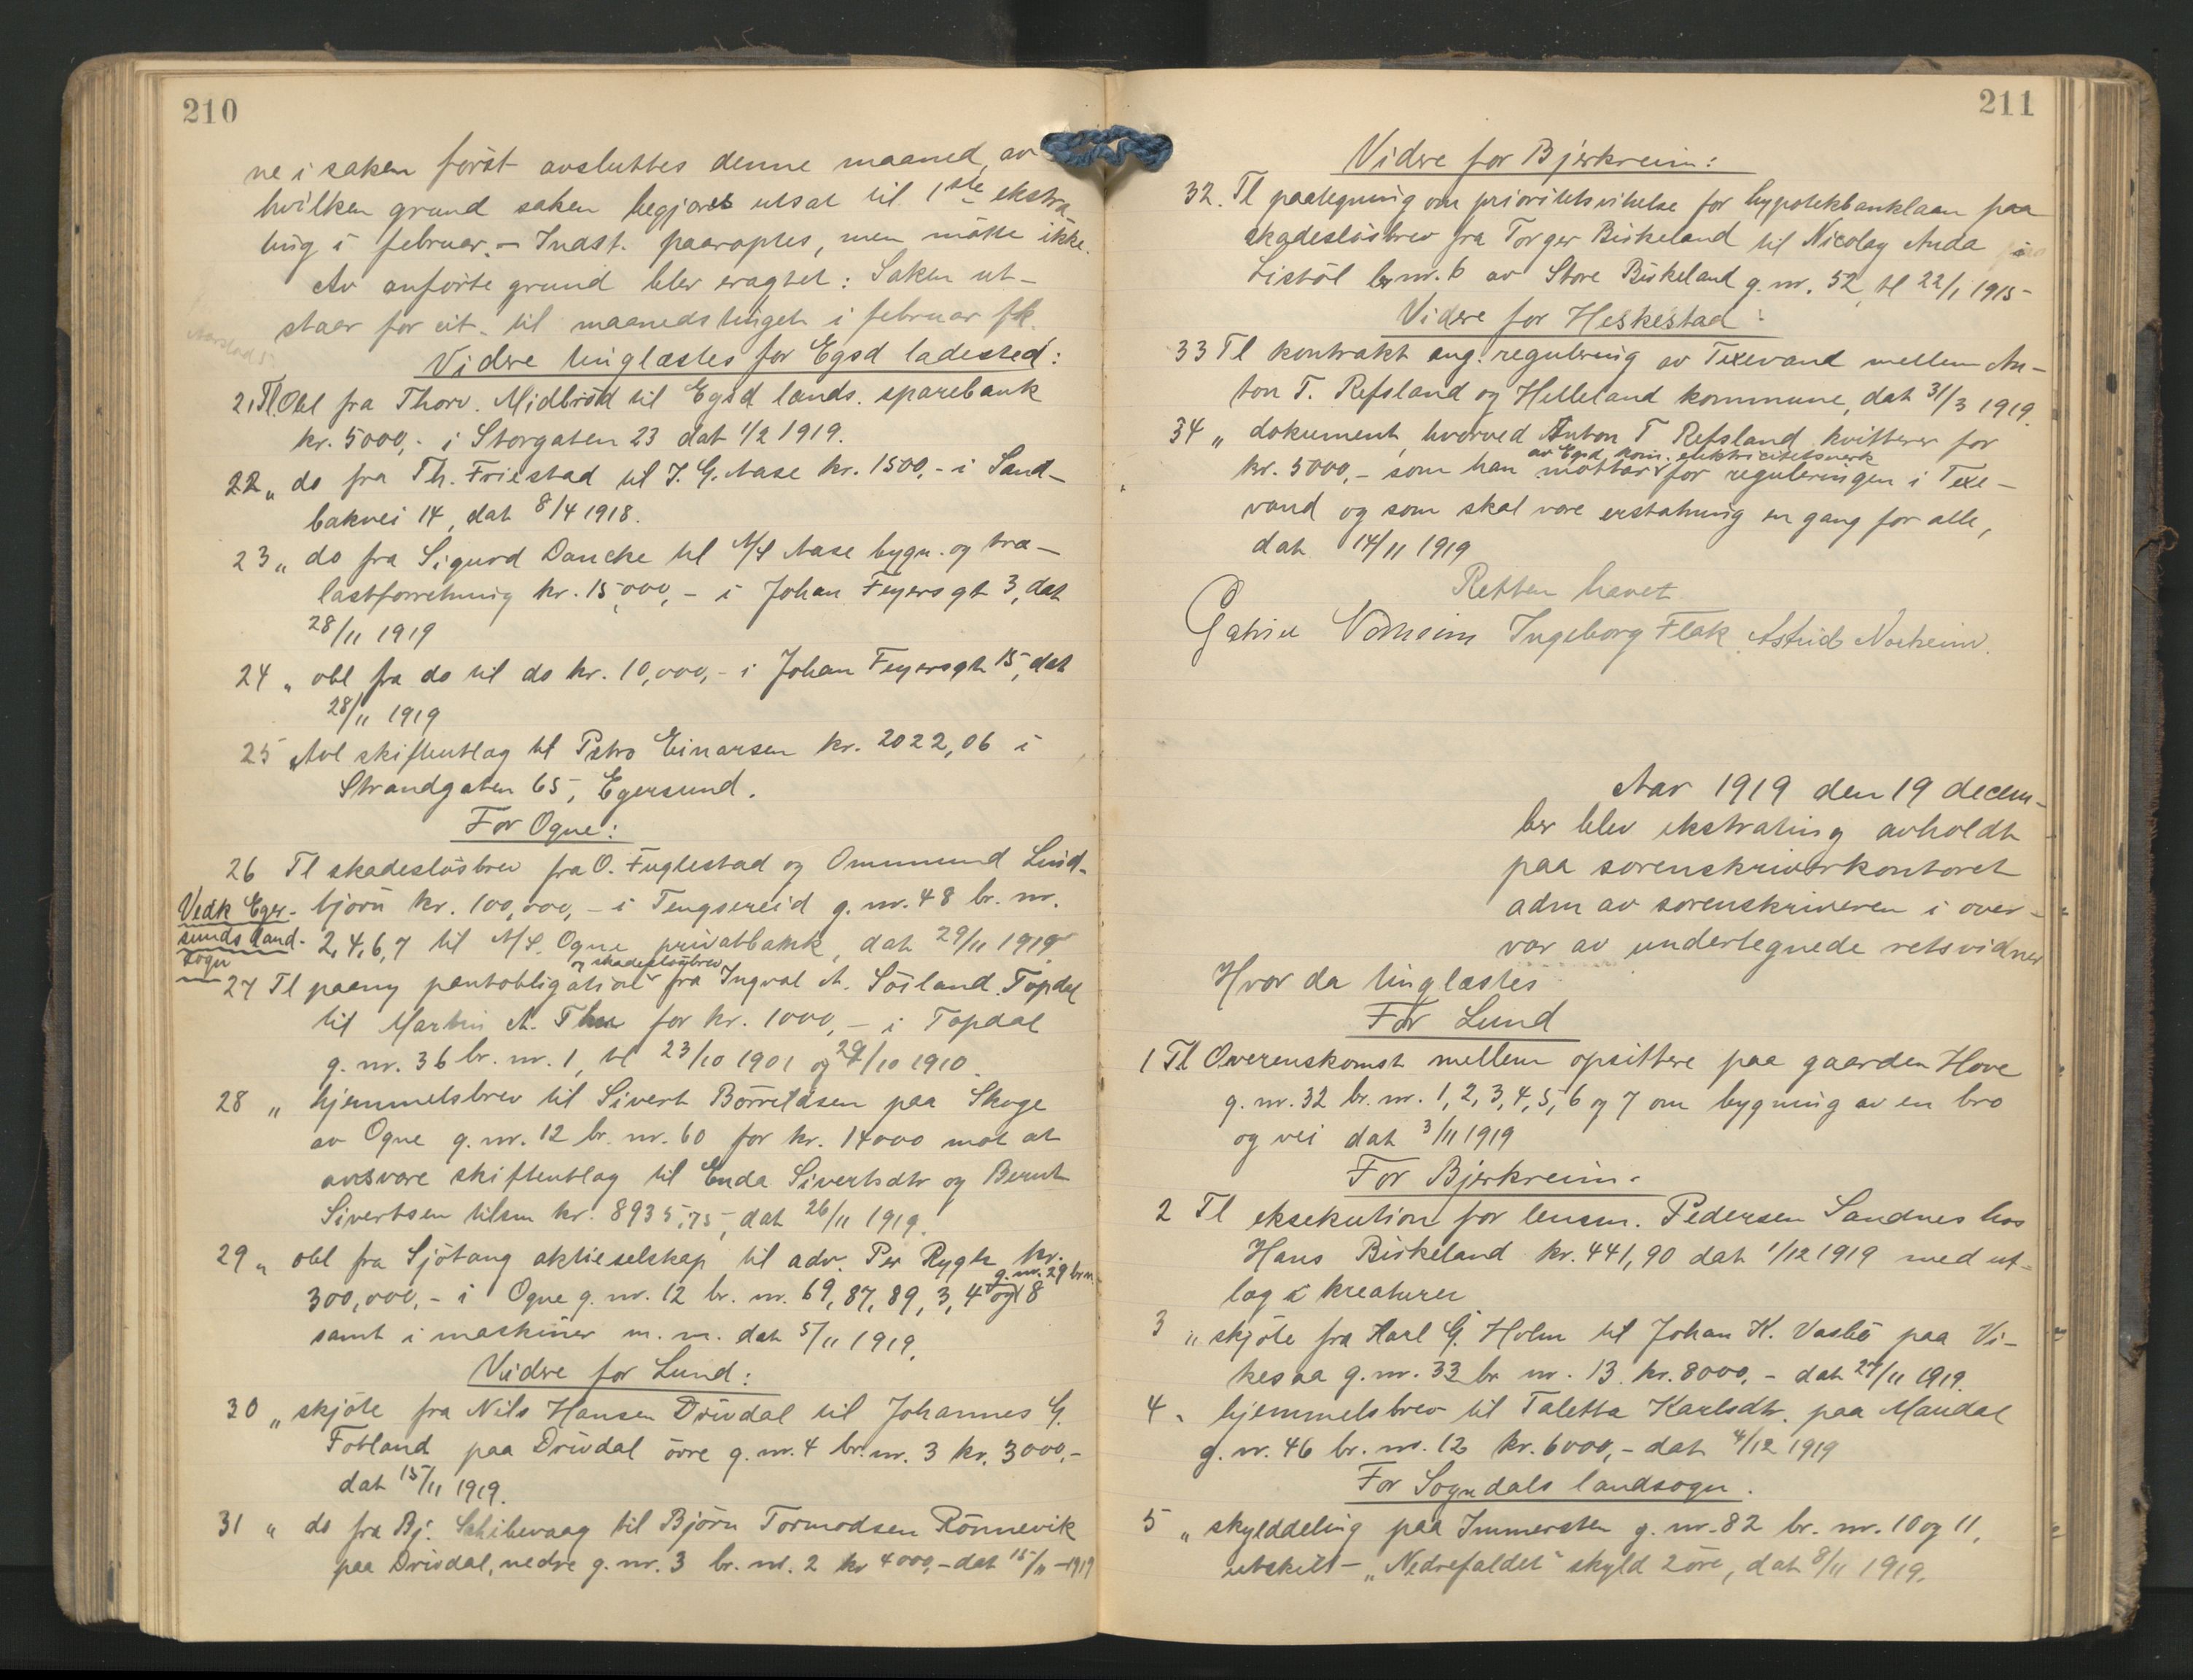 210
ne i saken först avsluttes denne maaned, av
hvilken grund saken begjæres utsat til 1ste ekstra
ting i februar. – Indst. paaroptes, men mötte ikke.
Av anförte grund blev eragtet: Saken ut-
staar for cit. til maanedstinget i februar fk.
Videre tinglæstes for Egsd ladested:
21 Tl Obl fra Thorv. Midbröd til Egsd lands. sparebank
kr. 5000,- i Storgaten 23 dat 1/2 1919.
22 „ do fra Th. Friestad til J. G. Aase kr. 1500,- i Sand-
bakvei 14, dat 8/4 1918.
23 „ do fra Sigurd Dancke til A/S Aase bygn. og træ-
lastforretning kr. 15,000,- i Johan Feyersgt 3, dat
28/11 1919
24 „ obl fra do til do kr. 10,000,- i Johan Feyersgt 15, dat
28/11 1919
25 „ Avl skifteutlag til Petro Einarsen kr. 2022,06 i
Strandgaten 65, Egersund.
For Ogne:
26 Tl skadeslösbrev fra O. Fuglestad og Ommund Lind-
Vedk Eger-
sunds land-
sogn
björn kr. 100,000,- i Tengsereid g. nr. 48 br. nr.
2, 4, 6, 7 til A/S. Ogne privatbank, dat 29/11 1919
og skadeslösbrev
27 Tl paany pantobligation fra Ingval A. Söiland Topdal
til Martin A. Thu for kr. 1000,- i Topdal
g. nr. 36 br. nr. 1, tl 23/10 1901 og 29/10 1910.
28 „ hjemmelsbrev til Sivert Börretdsen paa Skoge
av Ogne g. nr. 12 br. nr. 60 for kr. 14000 mot at
avsvare skifteutlag til Enda Sivertsdtr og Bernt
Sivertsen tilsm kr. 8935,75, dat 26/11 1919.
29 „ obl fra Sjötang aktieselskap til adv. Per Rygh kr.
g. nr. 29 br nr.
300,000,- i Ogne g. nr. 12 br. nr. 69, 87, 89, 3, 4 og 18
samt i maskiner m. m. dat 5/11 1919.
Videre for Lund:
30 „ skjöte fra Nils Hansen Drivdal til Johannes G.
Fotland paa Drivdal övre g. nr. 4 br. nr. 3 kr. 3000,-
dat 15/11 1919.
31 „ do fra Bj. Schibevaag til Björn Tormodsen Rönnevik
paa Drivdal, nedre g. nr. 3 br. nr. 2 kr 4000,- dat 15/11 – 1919
211
Videre for Bjerkreim:
32. Tl paategning om prioritetsvikelse for hypotekbanklaan paa
skadeslösbrev fra Torger Birkeland til Nicolay Anda i
Listöl br nr. 6 av Store Birkeland g. nr. 52, tl 22/1 1915
Videre for Heskestad:
33 Tl kontrakt ang. regulering av Texevand mellem An-
ton T. Refsland og Helleland kommune, dat 31/3 1919.
34 „ dokument, hvorved Anton T Refsland kvitterer for
av Egsd kom. elektricitetsverk
kr. 5000,- som han mottar for reguleringen i Texe-
vand og som skal være erstatning en gang for alle,
dat 14/11 1919
Retten hævet
Gabriel Ingeborg Flak. Astrid Norheim.
Aar 1919 den 19 decem-
ber blev ekstrating avholdt
paa sorenskriverkontoret
adm av sorenskriveren i over-
vær av undertegnede retsvidner
Hvor da tinglæstes
For Lund
1 Tl Overenskomst mellem opsittere paa gaarden Hove
g. nr. 32 br. nr. 1, 2, 3, 4, 5, 6 og 7 om bygning av en bro
og vei dat 3/11 1919
For Bjerkreim.
2 Tl eksekution for lensm. Pedersen Sandnes hos
Hans Birkeland kr. 441,90 dat 1/12 1919 med ut-
læg i kreaturer
3 „ skjöte fra Karl G. Holm til Johan K. Vasbö paa Vi-
kesaa g. nr. 33 br nr. 13 kr. 8000,- dat 27/11 1919.
4 „ hjemmelsbrev til Taletta Karlsdtr. paa Maudal
g. nr. 46 br. nr. 12 kr. 6000,- dat 4/12 1919
For Sogndals landsogn.
5 „ skylddeling paa Immersten g. nr. 82 br. nr. 10 og 11,
utskilt – „Nedrefaldet“ skyld 2 öre, dat 8/11 1919.